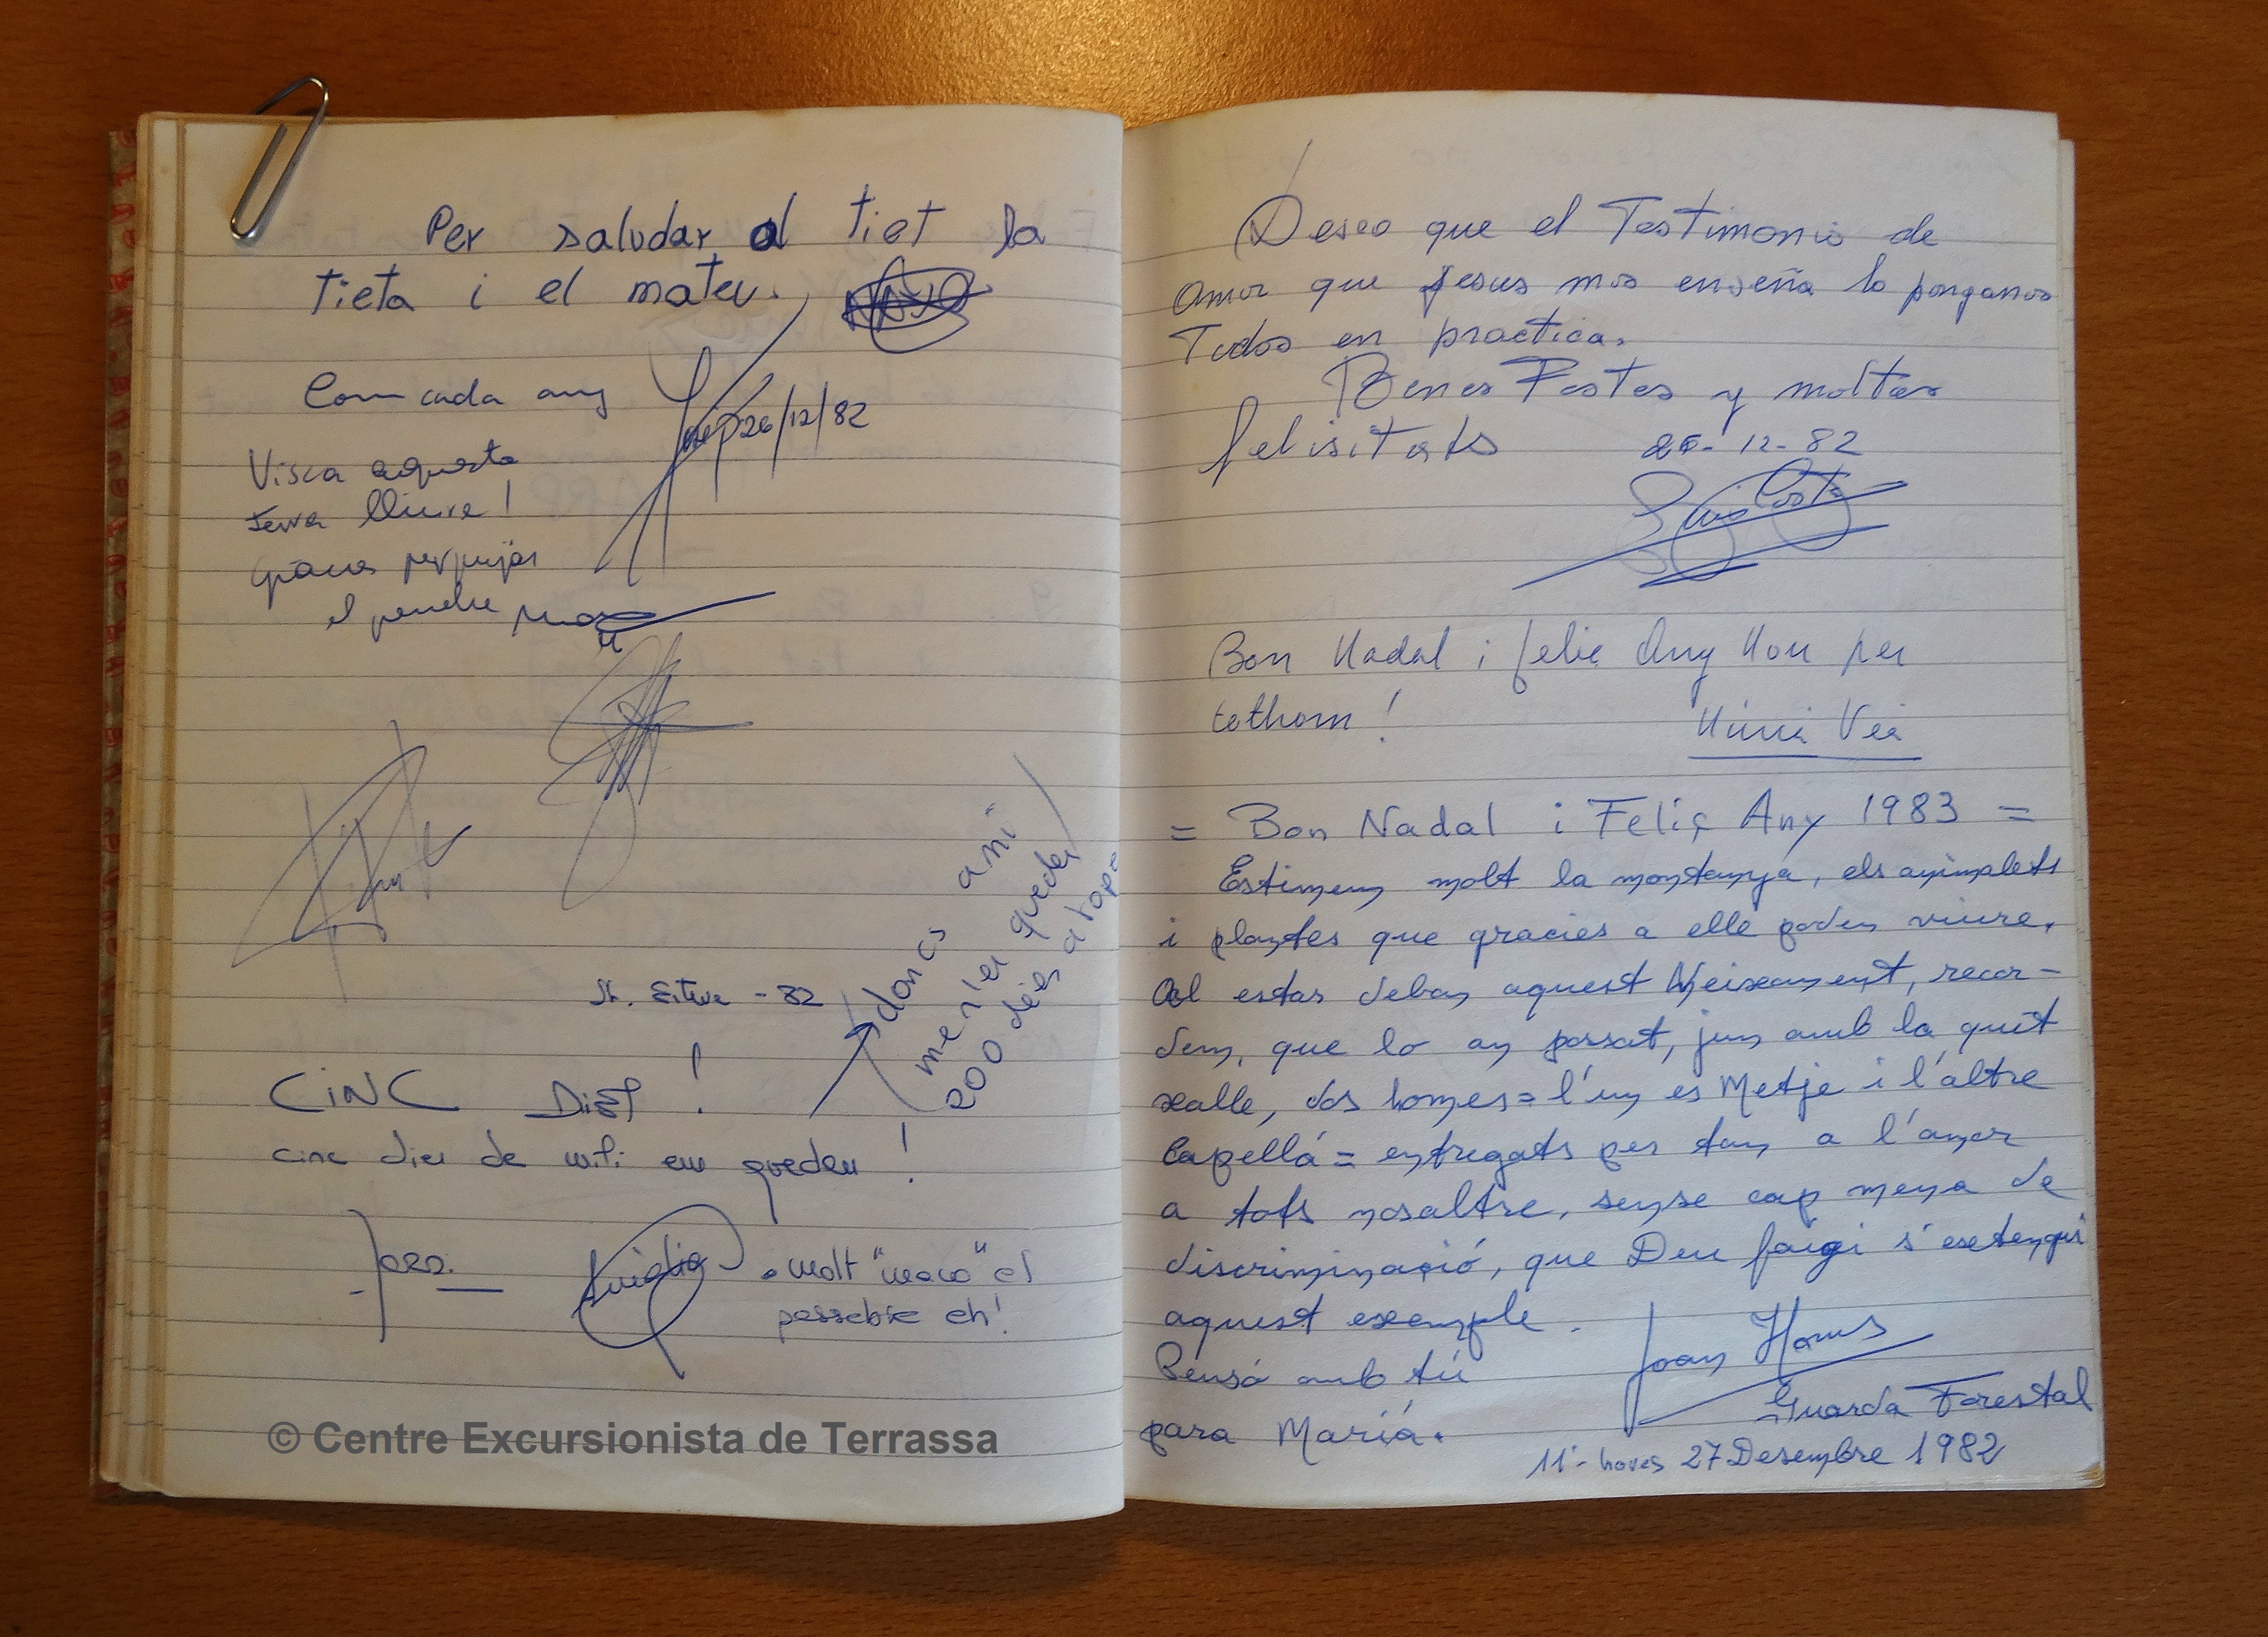 Per saludar al tiet la
tieta i el mateu.
Com cada any
26/12/82
Visca aquesta
terra lliure!
Gràcies per pujar
el pessebre
St. Esteve - 82
doncs a mi
me n'en queden
200 dies a tope
CINC DIES!
cinc dies de mili em queden!
molt "maco" el
pessebre eh!
© Centre Excursionista de Terrassa
Deseo que el Testimonio de
amor que Jesus mos enseña lo pongamos
Todos en practica.
Bones Festes y moltas
felisitats 26-12-82
Luis Costa
Bon Nadal i feliç Any Nou per
tothom!
Núria Veà
= Bon Nadal i Feliç Any 1983 =
Estimem molt la montanya, els animalets
i plantes que gracies a elle poden viure,
Al estar deban aquest Neixament, recor-
dem, que lo an possat, jun amb la quit
xalle, dos homes = l'un es Metje i l'altre
Capellá = entregats per tan a l'amor
a tots nosaltre, sense cap mena de
discriminació, que Deu faigi s'esetengui
aquest exemple.
Pensó amb tú
para Mariá.
Joan
Guarda Forestal
11'- hores 27 Desembre 1982